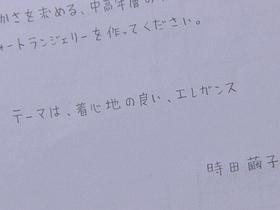 かさを求める、中高年層の
ォートランジェリーを作ってください。
テーマは、着心地の良い、エレガンス
時田繭子